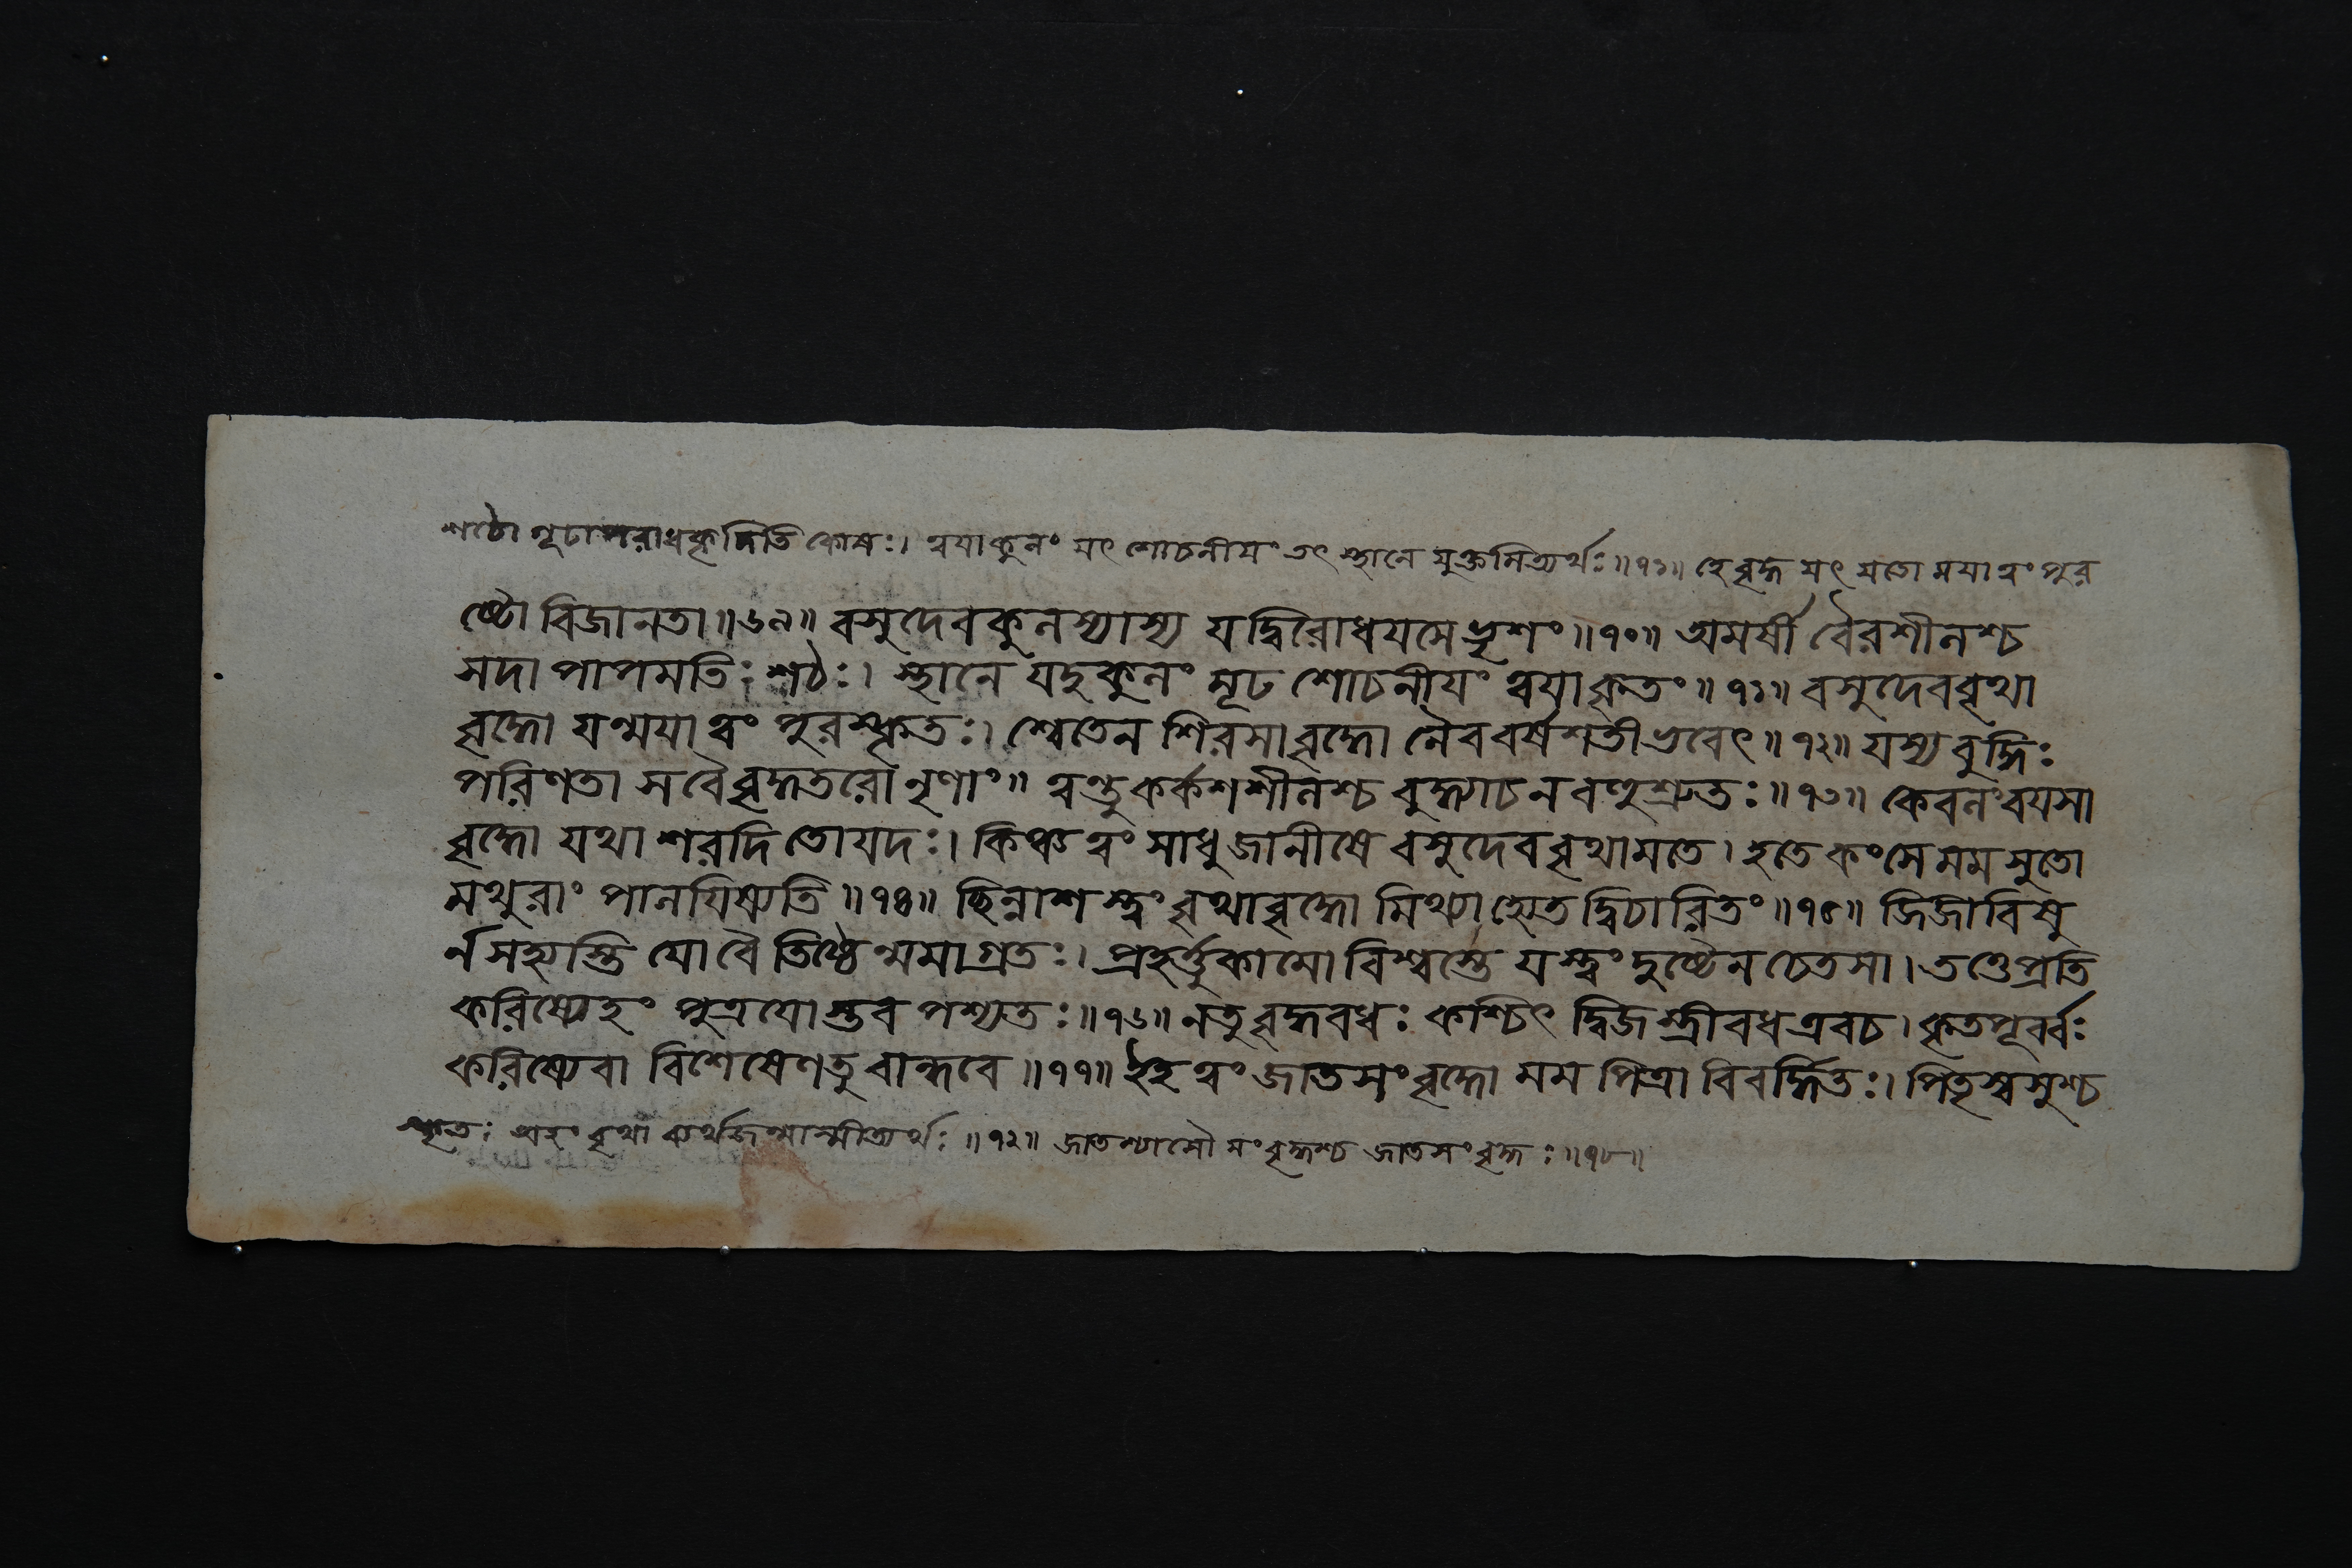 শঠো গূঢাপরাধকৃদিতি কোষঃ। ত্বযাকুলং যৎ শোচনীযং তৎ স্থানে যুক্তমিত্যর্থঃ॥৭১॥ হে বৃদ্ধ যৎ যতো মযা ত্বং পুর
ষ্টো বিজানতা॥৬৯॥ বসুদেবকুলস্যাস্য যদ্বিরোধযসে ভৃশং॥৭০॥ অমর্ষী বৈরশীলশ্চ
সদা পাপমতিঃ শঠঃ। স্থানে যদুকুলং মূঢ শোচনীযং ত্বযাকৃতং॥৭১॥ বসুদেববৃথা
বৃদ্ধো যন্মযা ত্বং পুরস্কৃতঃ। শ্বেতেন শিরসা বৃদ্ধো নৈববর্ষশতীভবেৎ॥৭২॥ যস্যবুদ্ধিঃ
পরিণতা সবৈবৃদ্ধতরো নৃণাং॥ ত্বন্তুকর্কশশীলশ্চ বুদ্ধ্যাচ ন বহুশ্রুতঃ॥৭৩॥ কেবলংবযসা
বৃদ্ধো যথা শরদি তোযদঃ। কিঞ্চ ত্বং সাধুজানীষে বসুদেববৃথামতে। হতে কংসে মম সুতো
মথুরাং পালযিষ্যতি॥৭৪॥ ছিন্নাশস্ত্বং বৃথাবৃদ্ধো মিথ্যাহ্যেতদ্বিচারিতং॥৭৫॥ জিজীবিষু
র্ন সহ্যস্তি যো বৈ তিষ্ঠেন্মমাগ্রতঃ। প্রহর্ত্তুকামো বিশ্বস্তে যস্ত্বং দুষ্টেন চেতসা। তত্তেপ্রতি
করিষ্যেহং পুত্রযোস্তব পশ্যতঃ॥৭৬॥ নতু বৃদ্ধবধঃ কশ্চিৎ দ্বিজস্ত্রীবধএবচ। কৃতপূর্ব্বঃ
করিষ্যেবা বিশেষেণতু বান্ধবে॥৭৭॥ ইহ ত্বং জাতসংবৃদ্ধো মম পিত্রা বিবর্দ্ধিতঃ। পিতৃস্বসুশ্চ
স্কৃতঃ অহং বৃথা ব্যর্থজন্মাস্মীত্যর্থঃ॥৭২॥ জাতশ্চাসৌ সংবৃদ্ধশ্চ জাতসংবৃদ্ধঃ॥৭৮॥